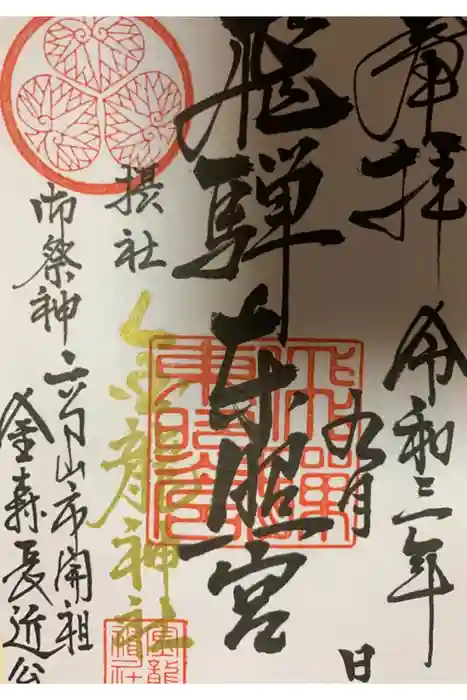 奉拝
令和三年
九月　日
飛騨東照宮
飛騨東照宮
摂社
金龍神社
金龍神社
御祭神　高山市開祖
金森長近公